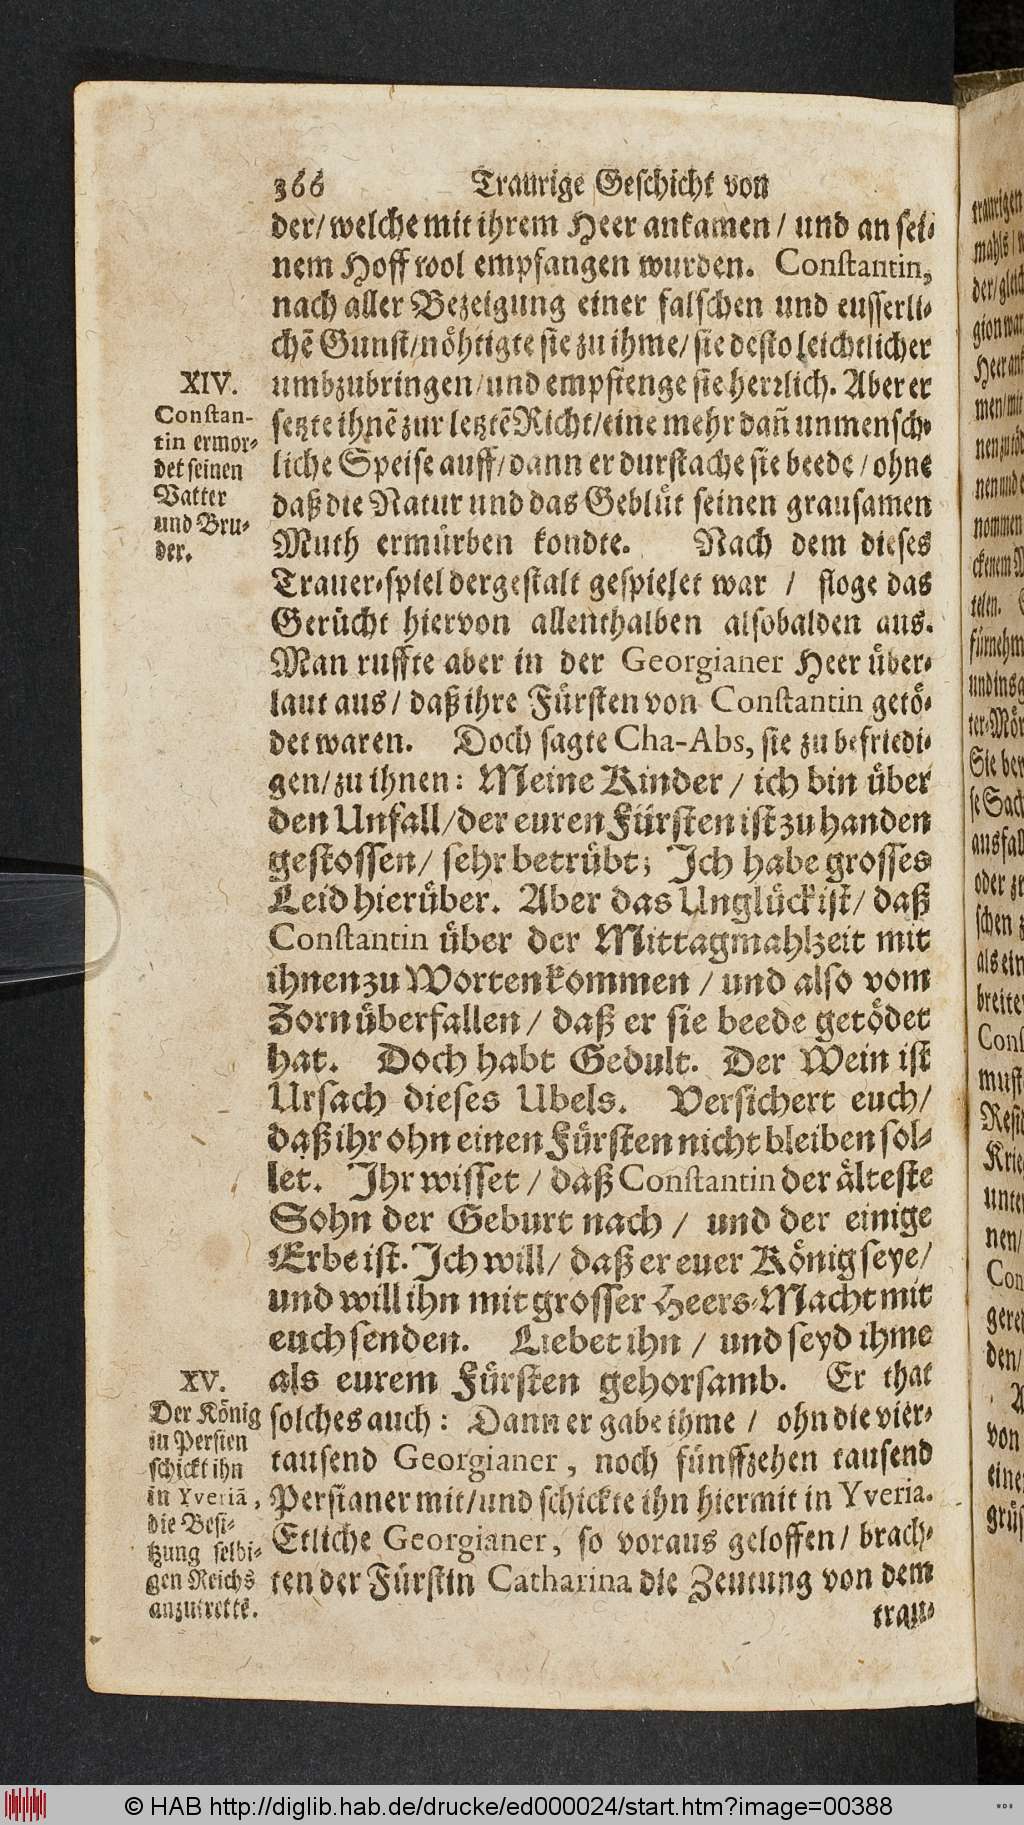 366 Traurige Geschicht von
der/ welche mit ihrem Heer ankamen / und an sei-
nem Hoff wol empfangen wurden. Constantin,
nach aller Bezeigung einer falschen und eusserli-
chē Gunst/ nöhtigte sie zu ihme/ sie desto leichtlicher
umbzubringen/ und empfienge sie herrlich. Aber er
setzte ihnē zur letztē Richt/ eine mehr dañ unmensch-
liche Speise auff/ dann er durstache sie beede / ohne
daß die Natur und das Geblüt seinen grausamen
Muth ermürben kondte. Nach dem dieses
Trauer-spiel dergestalt gespielet war / floge das
Gerücht hiervon allenthalben alsobalden aus.
Man ruffte aber in der Georgianer Heer über-
laut aus / daß ihre Fürsten von Constantin getö-
det waren. Doch sagte Cha-Abs, sie zu befriedi-
gen/ zu ihnen: Meine Kinder / ich bin über
den Unfall/ der euren Fürsten ist zu handen
gestossen/ sehr betrübt; Ich habe grosses
Leid hierüber. Aber das Unglück ist/ daß
Constantin über der Mittagmahlzeit mit
ihnen zu Worten kommen / und also vom
Zorn überfallen / daß er sie beede getödet
hat. Doch habt Gedult. Der Wein ist
Ursach dieses Ubels. Versichert euch/
daß ihr ohn einen Fürsten nicht bleiben sol-
let. Ihr wisset / daß Constantin der älteste
Sohn der Geburt nach / und der einige
Erbe ist. Ich will/ daß er euer König seye/
und will ihn mit grosser Heers-Macht mit
euch senden. Liebet ihn / und seyd ihme
als eurem Fürsten gehorsamb. Er that
solches auch: Dann er gabe ihme / ohn die vier-
tausend Georgianer, noch fünffzehen tausend
Persianer mit/ und schickte ihn hiermit in Yveria.
Etliche Georgianer, so voraus geloffen/ brach-
ten der Fürstin Catharina die Zeutung von dem
trau-
XIV.
Constan-
tin ermor-
det seinen
Vatter
und Bru-
der.
XV.
Der König
in Persien
schickt ihn
in Yveriā,
die Besi-
tzung selbi-
gen Reichs
anzutrette.
traurigen
mahls
der/ gleich
gion war
Heer
men/ mit
nommen
ckenem
telen.
fürnehm
und ins
Sie
se Sach
ausfall
oder
schen
als ein
breite
Const
must
Kri
unter
nen/
Con
gere
den/
von
eine
© HAB http://diglib.hab.de/drucke/ed000024/start.htm?image=00388